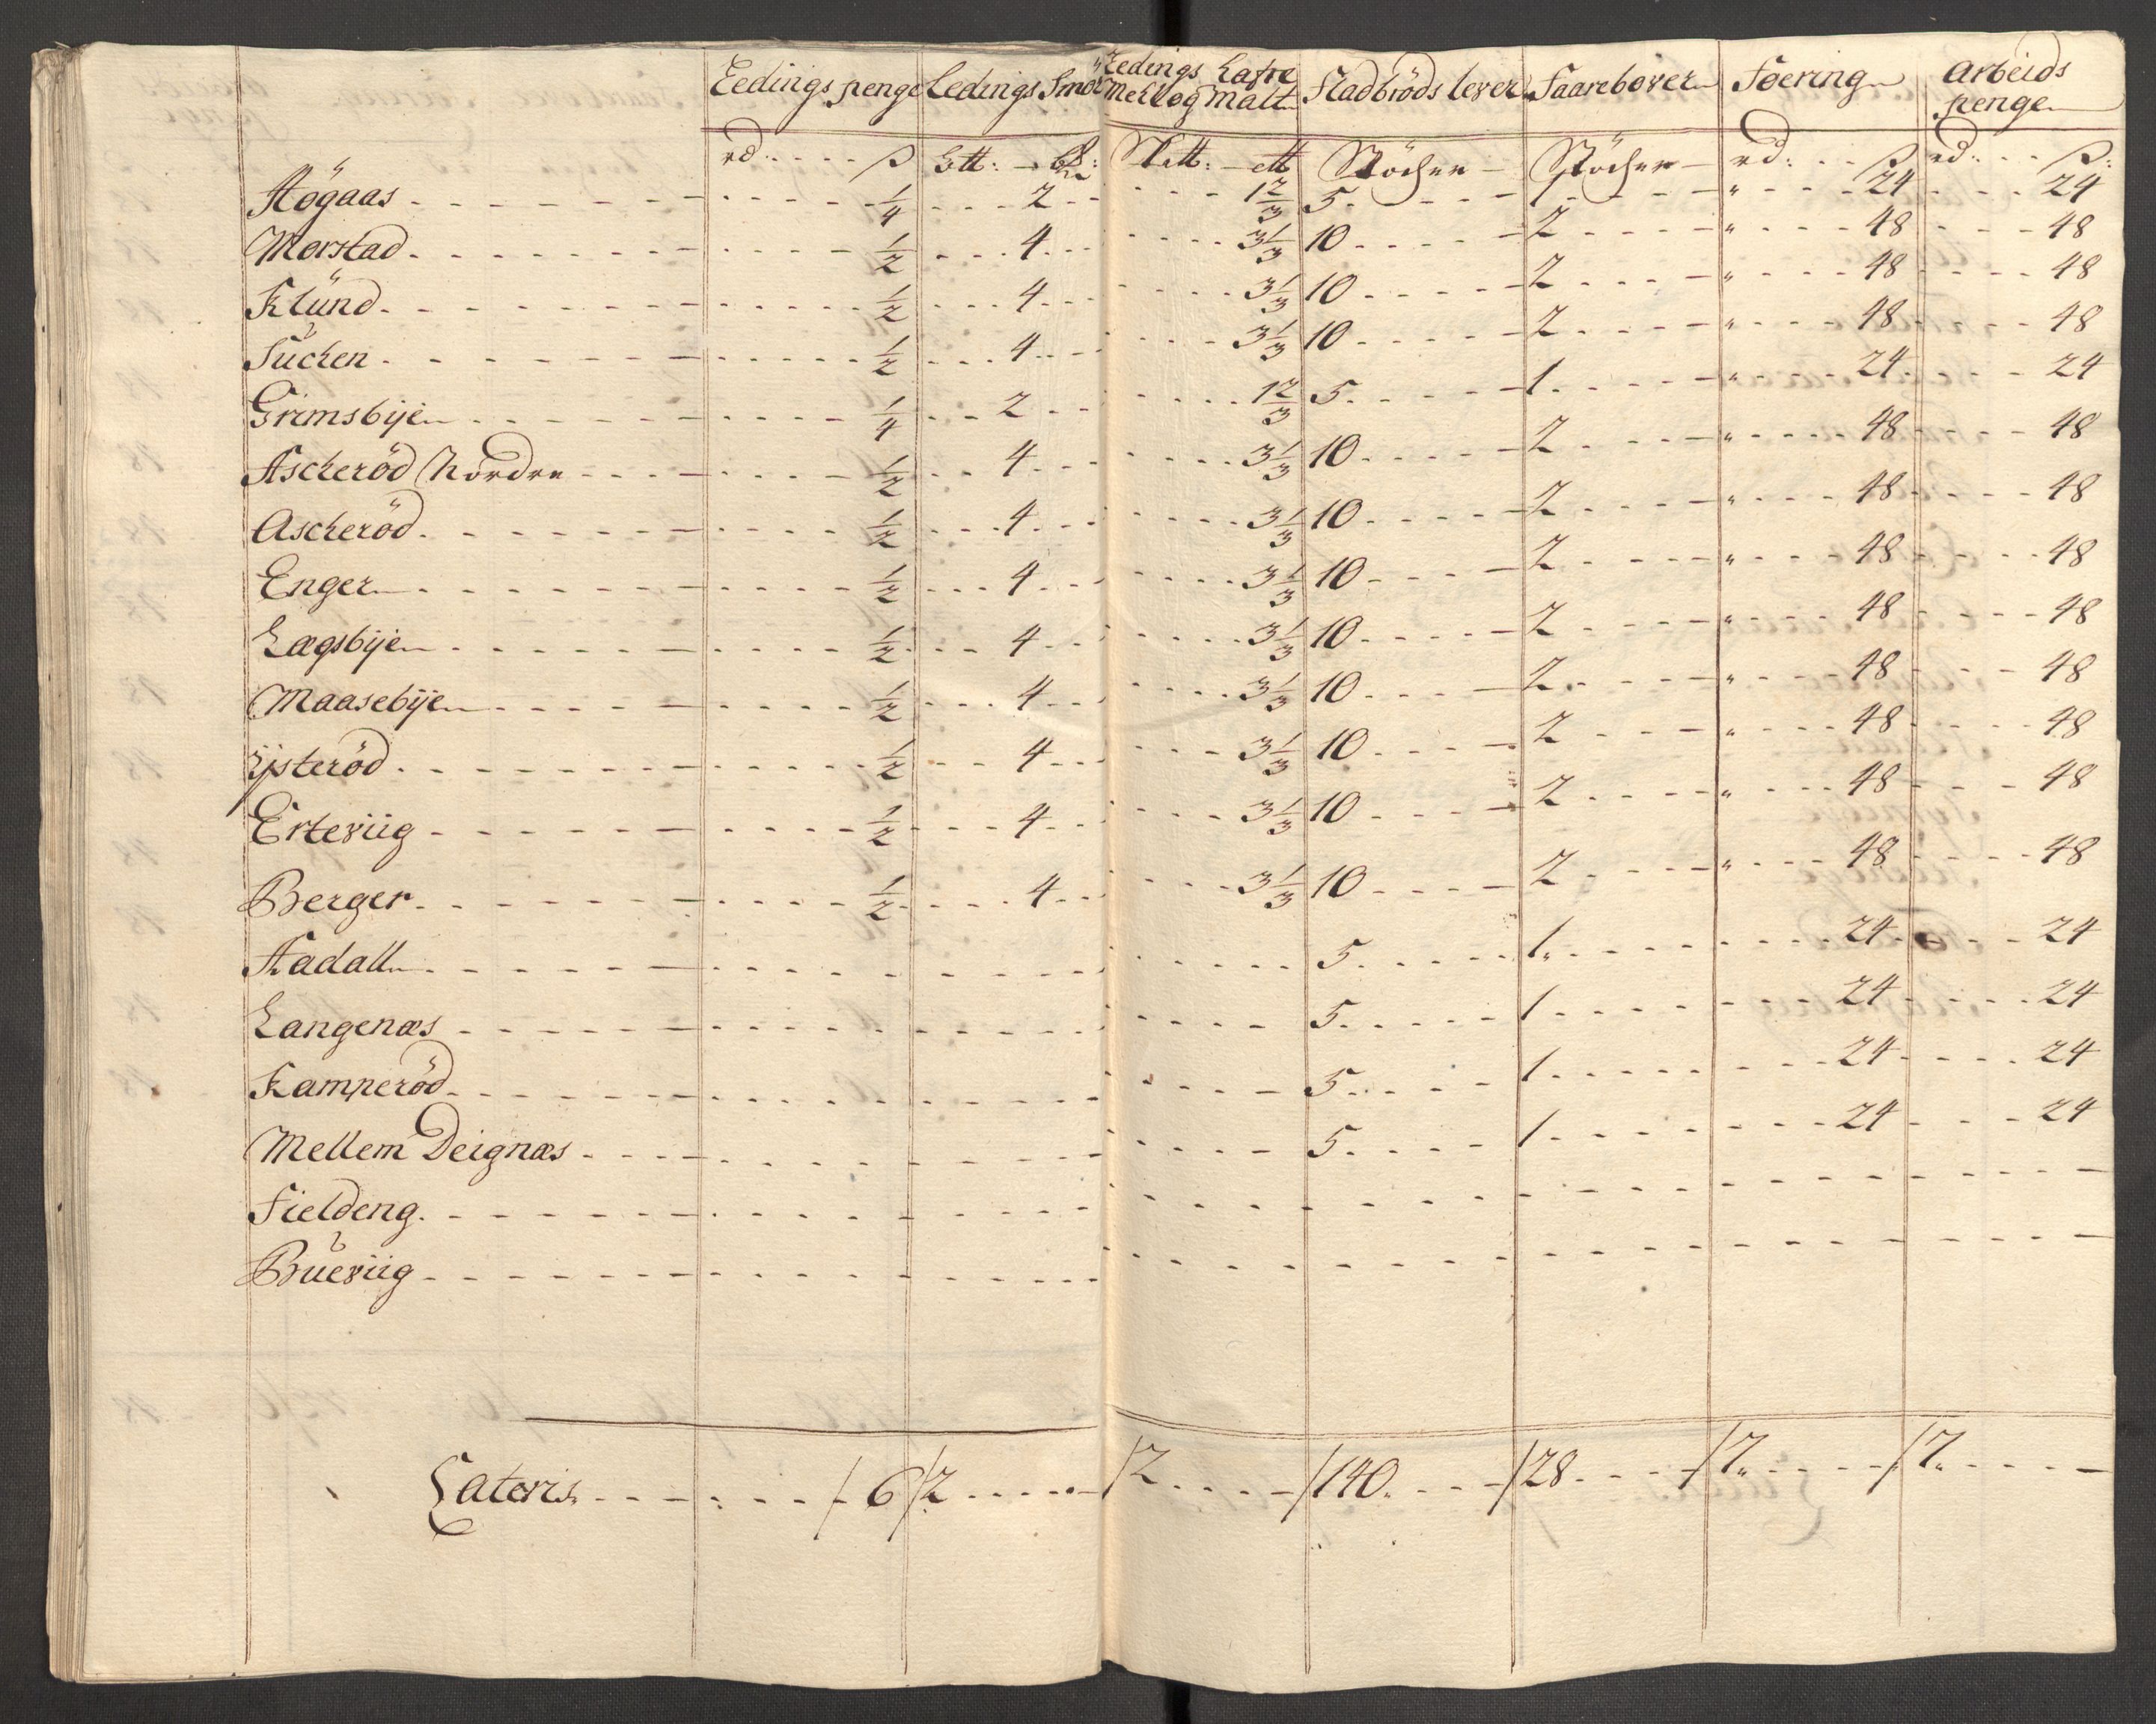 Ledings penge Ledings Smör Ledings Hafre Stadbröds lever Faarebover Foering Arbeids
Mell og Malt penge
rd: ß Stöcher Stöcher rd: ß rd: ß:
Högaas 1/4 2 1 2/3 5 1 " 24 24
Morstad 1/2 4 3 1/3 10 2 " 48 48
Klünd 1/2 4 3 1/3 10 2 " 48 48
Suchen 1/2 4 3 1/3 10 2 " 48 48
Grimsbije 1/4 2 1 2/3 5 1 " 24 24
Ascheröd Nordre 1/2 4 3 1/3 10 2 " 48 48
Ascheröd 1/2 4 3 1/3 10 2 " 48 48
Enger 1/2 4 3 1/3 10 2 " 48 48
Lagsbije 1/2 4 3 1/3 10 2 " 48 48
Maasebije 1/2 4 3 1/3 10 2 " 48 48
ijsteröd 1/2 4 3 1/3 10 2 " 48 48
Erteviig 1/2 4 3 1/3 10 2 " 48 48
Berger 1/2 4 3 1/3 10 2 " 48 48
Aadall 5 1 24 24
Langenæs 5 1 24 24
Kamperöd 5 1 24 24
Mellem Deignæs 5 1 24 24
Fieldeng
Bueviig
Lateris 6 2 2 140 28 7 7